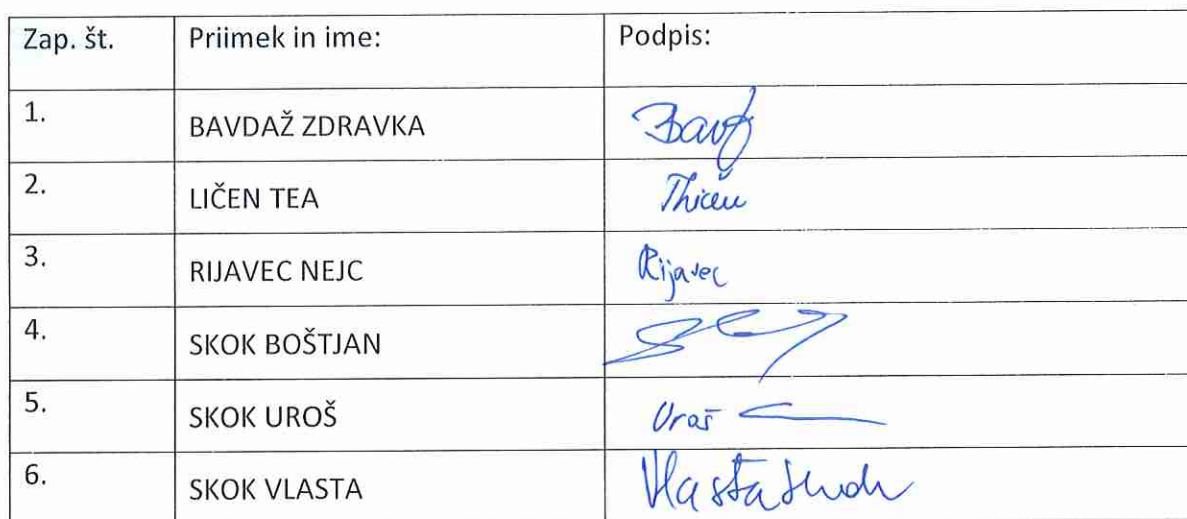 Zap. št. Priimek in ime: Podpis:
1. BAVDAŽ ZDRAVKA
2. LIČEN TEA
3. RIJAVEC NEJC Rijavec
4. SKOK BOŠTJAN
5. SKOK UROŠ Uroš
6. SKOK VLASTA Vlasta